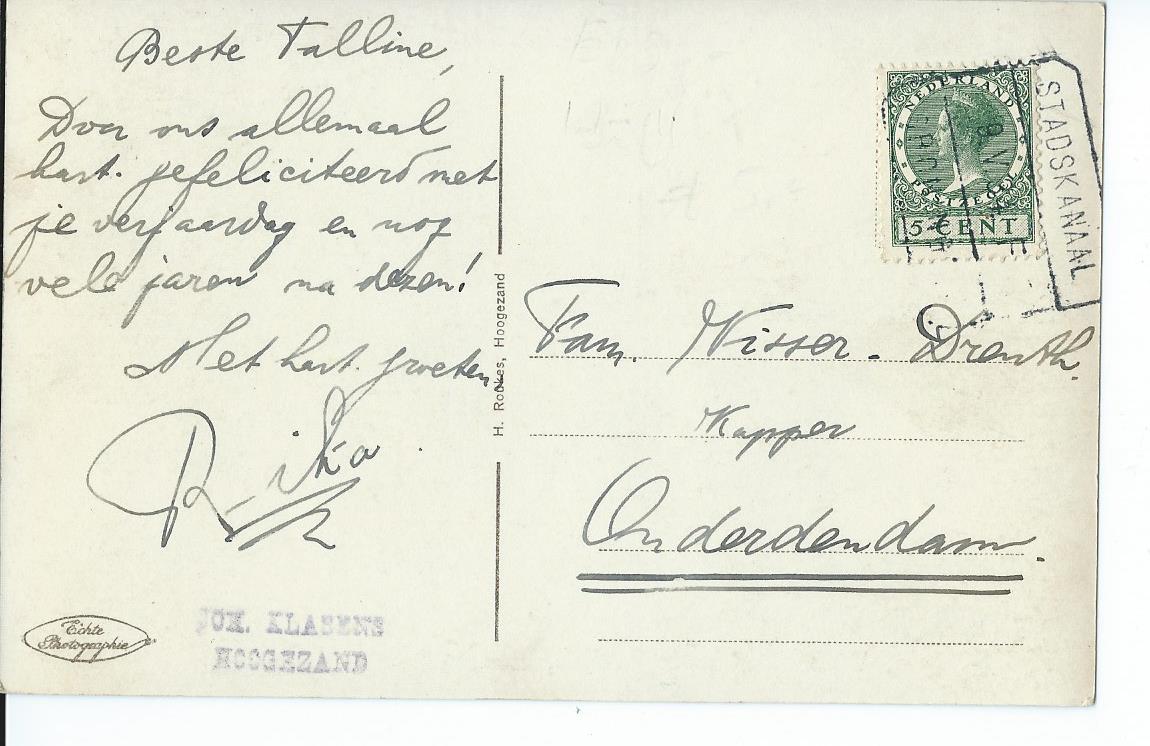 Beste Talline,
Door ons allemaal
hart. gefeliciteerd met
je verjaardag en nog
vele jaren na dezen!
Met hart. groeten,
Rika
Echte
Photographie
JOH. KLASENS
HOOGEZAND
H. Rookes, Hoogezand
NEDERLAND
POSTZEGEL
5 CENT
STADSKANAAL
Fam. Visser - Drenth.
Kapper
Onderdendam.